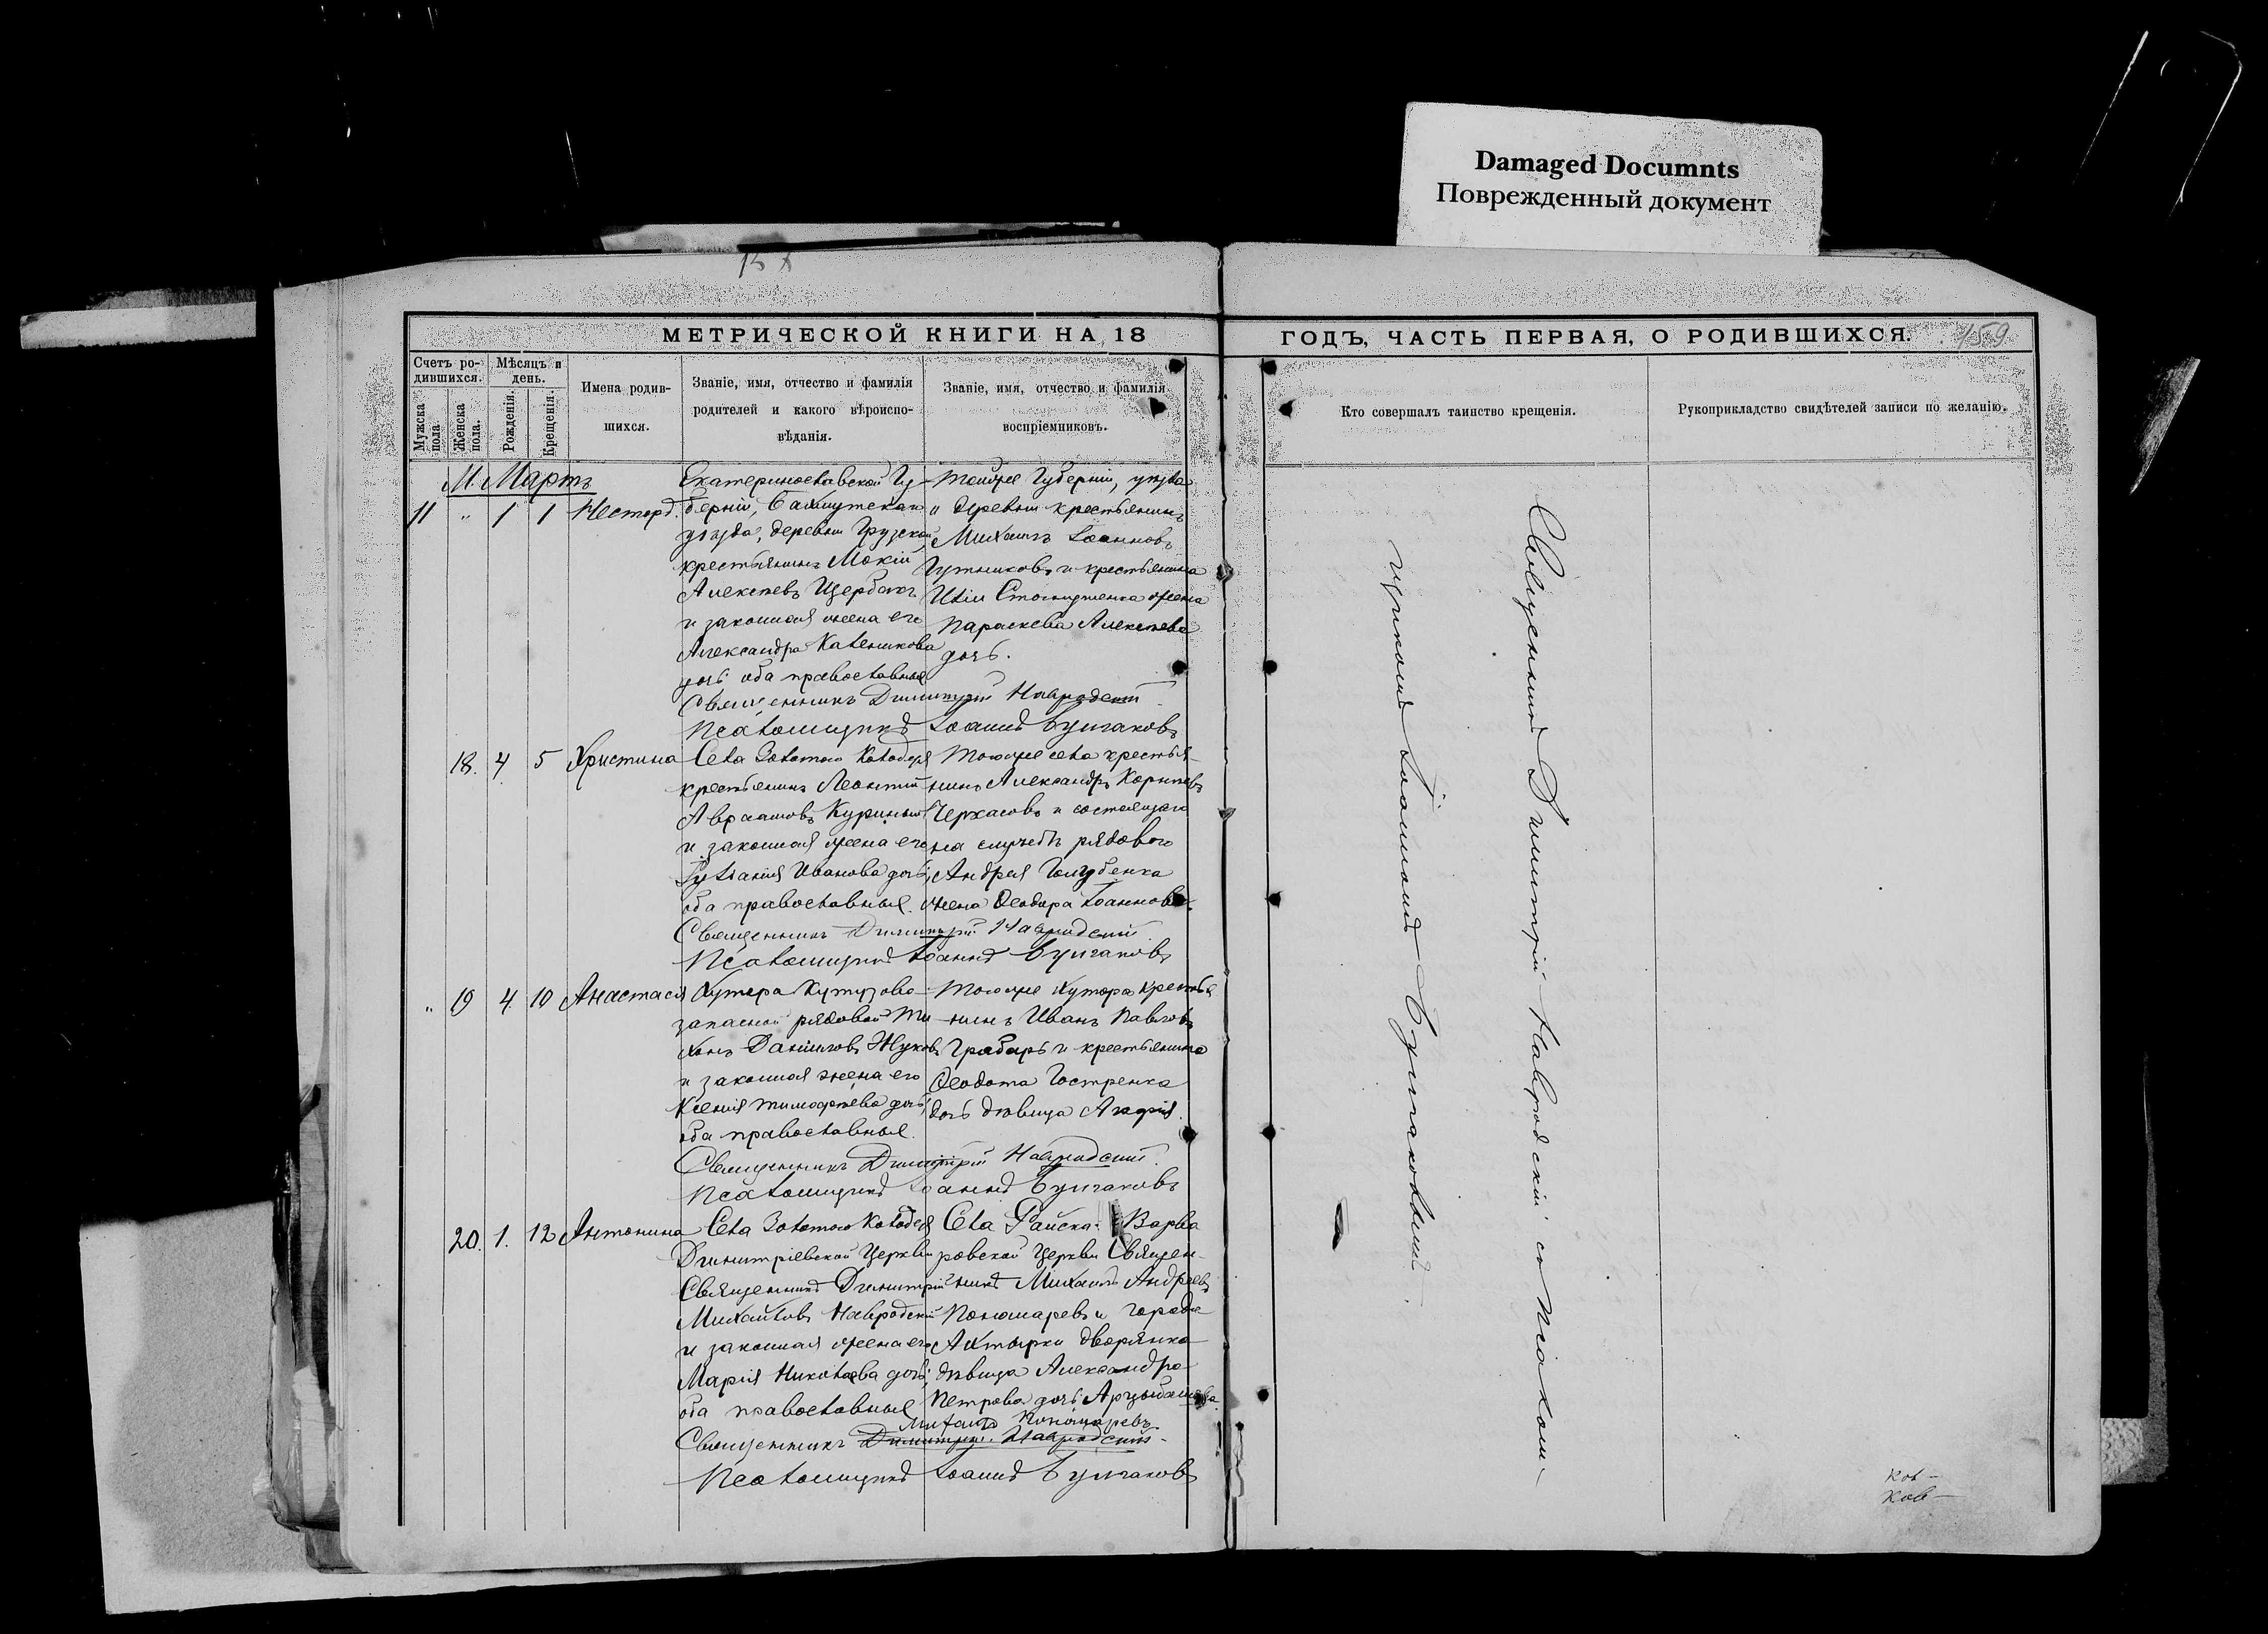 Damaged Documnts
Поврежденный документ
МЕТРИЧЕСКОЙ КНИГИ НА 18
ГОДЪ, ЧАСТЬ ПЕРВАЯ, О РОДИВШИХСЯ.
159
Счетъ ро-
дившихся.
Мужска
пола.
Женска
пола.
Мѣсяцъ и
день.
Рожденія.
Крещенія.
Имена родив-
шихся.
Званіе, имя, отчество и фамилія
родителей и какого вѣроиспо-
вѣданія.
Званіе, имя, отчество и фамилія
воспріемниковъ.
Кто совершалъ таинство крещенія.
Рукоприкладство свидѣтелей записи по желанію.
М. Мартъ
11 " 1 1 Несторъ.
Екатеринославской Гу-
берніи, Бахмутскаго
уѣзда, деревни Грузской
крестьянинъ Мокій
Алексѣевъ Щербакъ
и законная жена его
Александра
дочь оба православные
Тойже Губерніи, уѣзда
и деревни крестьянинъ
Михаилъ Іоанновъ
и крестьянина
жена
Параскева Алексѣева
дочь.
Священникъ Димитрій Навродскій
Псаломщикъ Іоаннъ Булгаковъ
18. 4 5 Христина
Села Золотаго Колодезя
крестьянинъ Леонтій
Авраамовъ
и законная жена его
Иванова дочь,
оба православные.
Тогоже села крестья-
нинъ Александръ
Черкасовъ и состоящаго
на службѣ рядового
Андрея Голубенка
жена Ѳеодора Іоаннова.
Священникъ Димитрій Навродскій
Псаломщикъ Іоаннъ Булгаковъ
" 19 4 10 Анастасія
Хутора
запасной рядовой Ти-
хонъ Даниловъ Жуковъ
и законная жена его
Ксенія Тимофеева дочь,
оба православные.
Тогоже хутора крестья-
нинъ Иванъ Павловъ
Грабарь и крестьянина
Ѳеодота Гостренка
дочь дѣвица Агафія.
Священникъ Димитрій Навродскій.
Псаломщикъ Іоаннъ Булгаковъ
20. 1. 12 Антонина
Села Золотаго Колодезя
Димитріевской Церкви
Священникъ Димитрій
Михайловъ Навродскій
и законная жена его
Марія Николаева дочь,
оба православные
Села Райска Варва
ровской Церкви Священ-
никъ Михаилъ Андреевъ
Пономаревъ и города
Ахтырки дворянка
дѣвица Александра
Петрова дочь Арцыбашева.
Михаилъ Пономаревъ
Священникъ Димитрій Навродскій
Псаломщикъ Іоаннъ Булгаковъ
Священникъ Димитрій Навродскій съ Псалом-
щикомъ Іоанномъ Булгаковымъ.